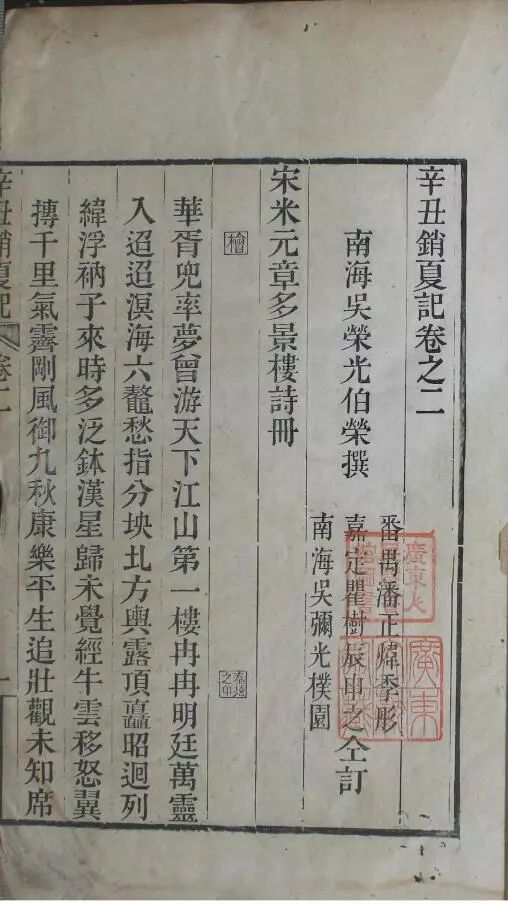 辛丑銷夏記卷之二
南海吳榮光伯榮撰
番禺潘正煒季彤
嘉定瞿樹辰申之仝訂
南海吳彌光樸園
宋米元章多景樓詩冊
檜
秦檜之印
華胥兜率夢曾游天下江山第一樓冉冉明廷萬靈
入迢迢溟海六鼇愁指分坱圠方輿露頂矗昭迴列
緯浮衲子來時多泛鉢漢星歸未覺經牛雲移怒翼
摶千里氣霽剛風御九秋康樂平生追壯觀未知席
辛丑銷夏記 卷二 一
廣東
廣東